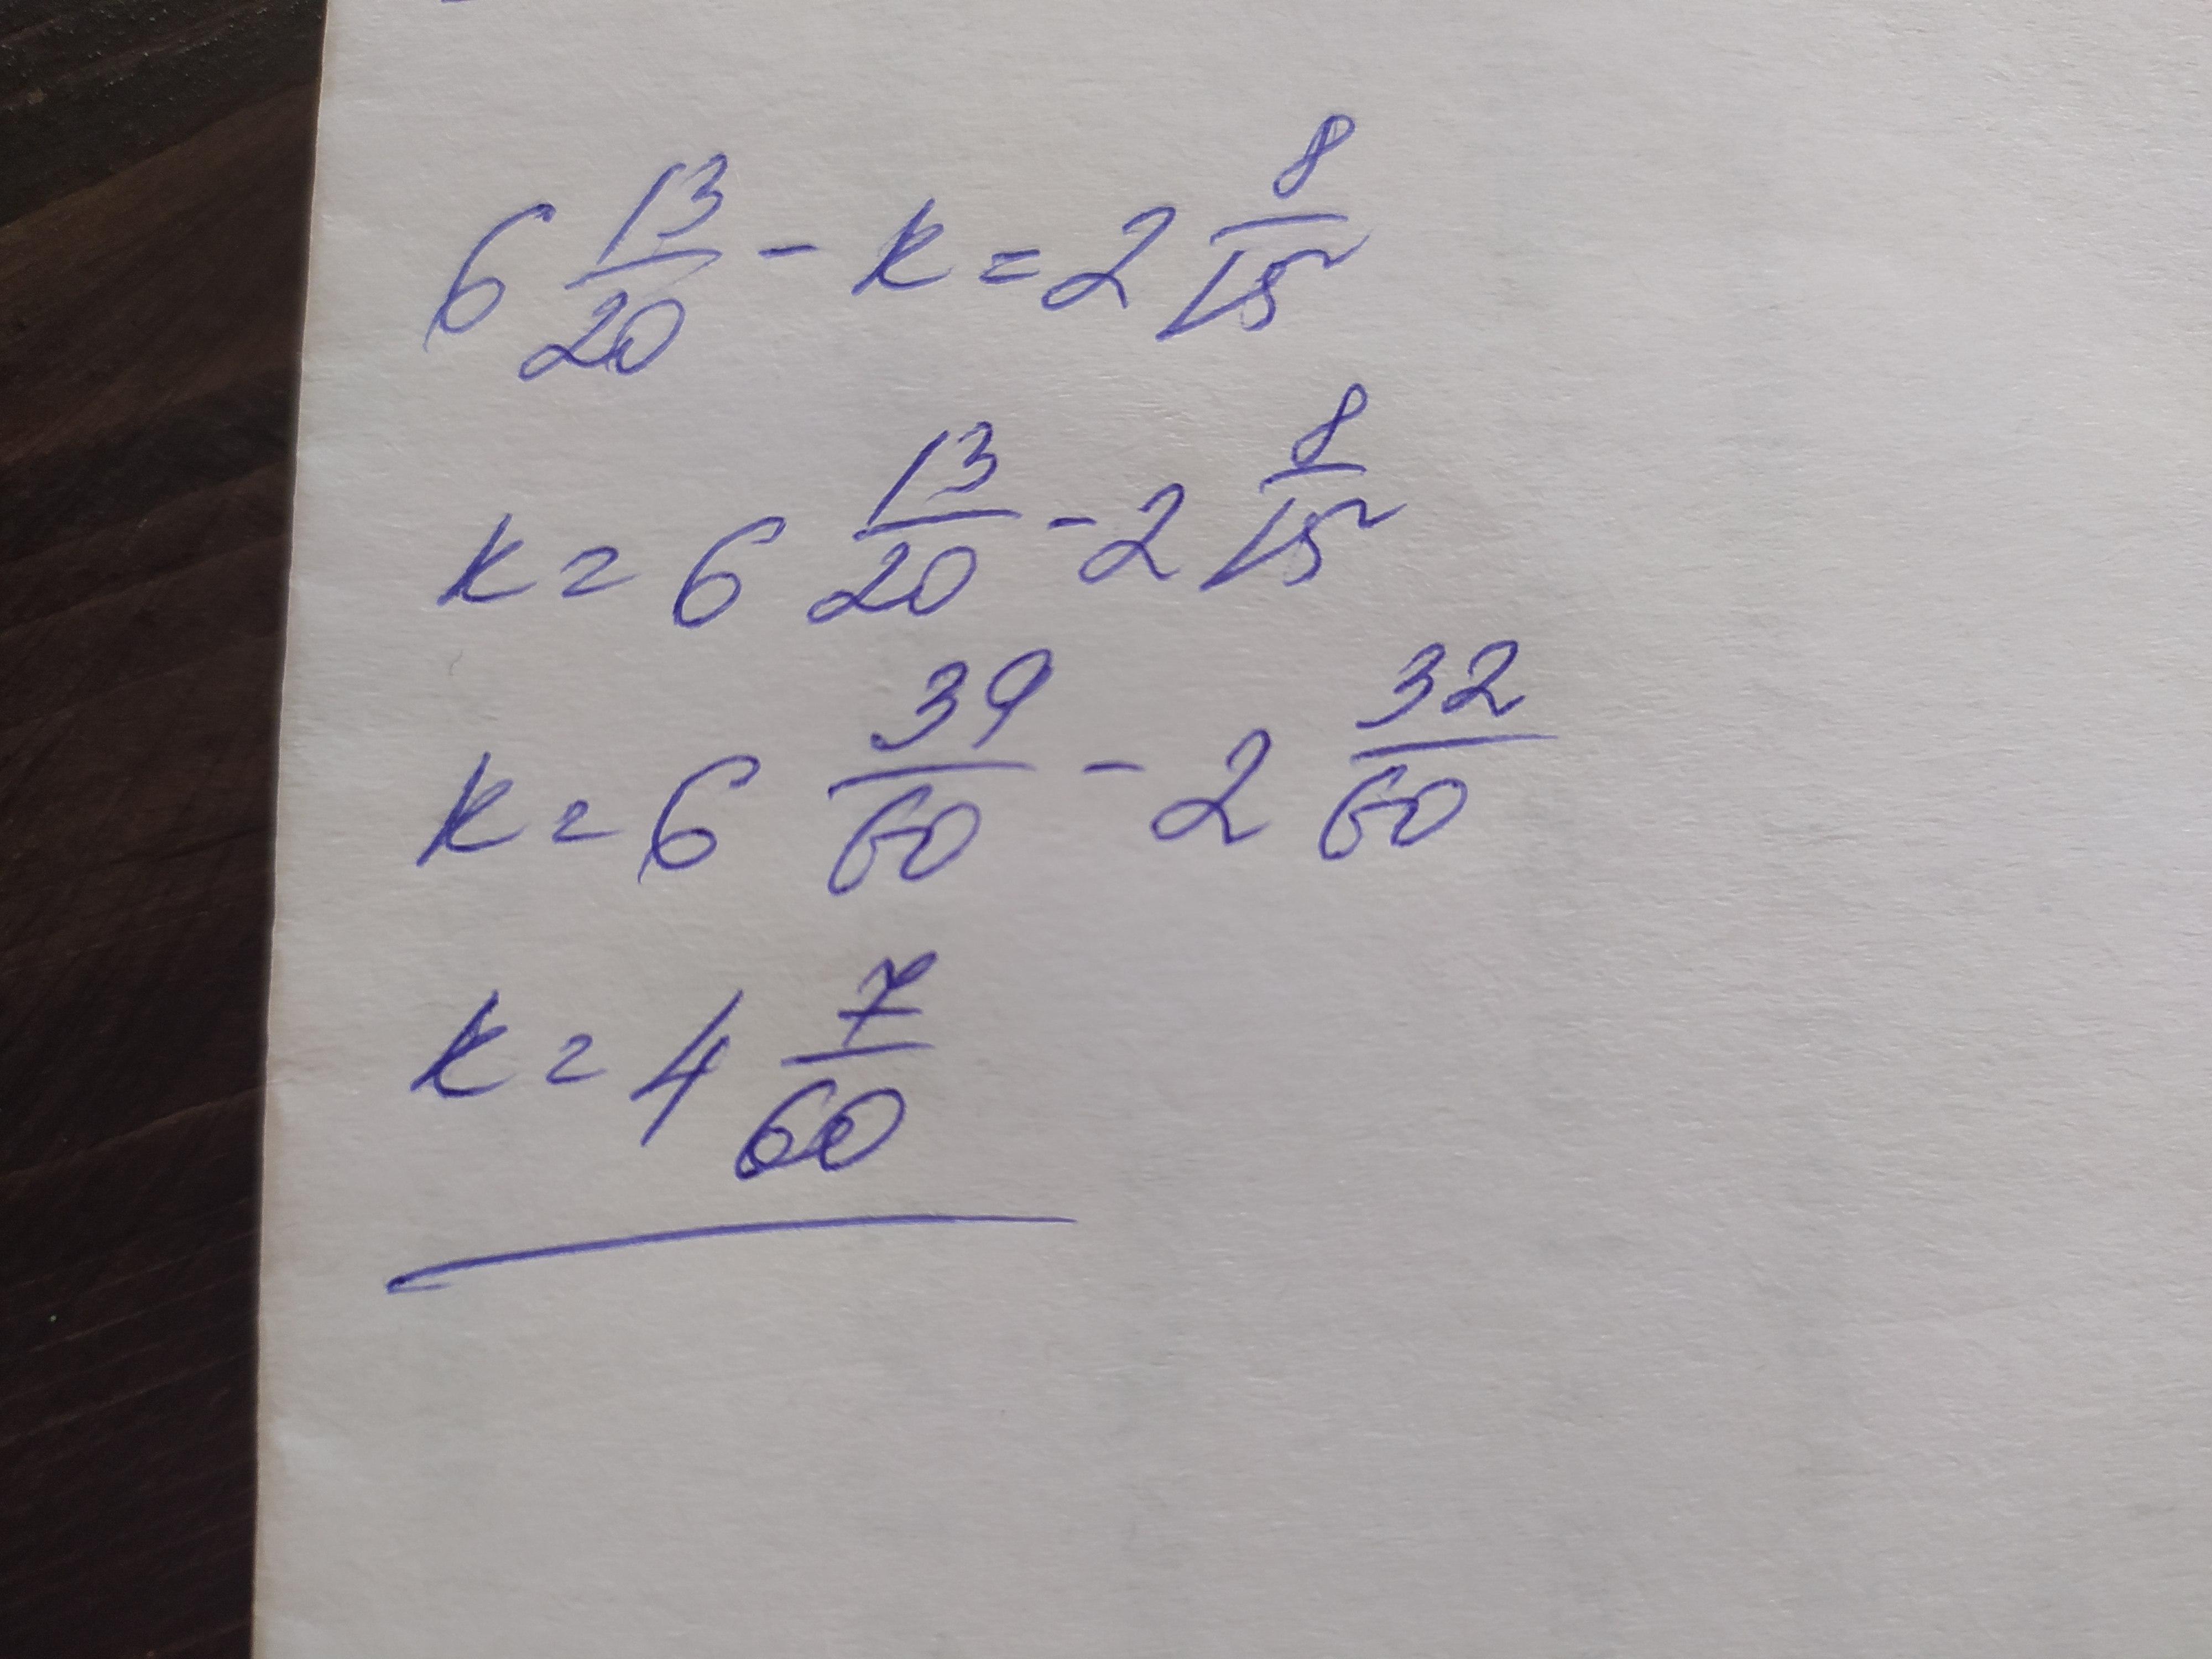 6 13/20 - k = 2 8/15
k = 6 13/20 - 2 8/15
k = 6 39/60 - 2 32/60
k = 4 7/60